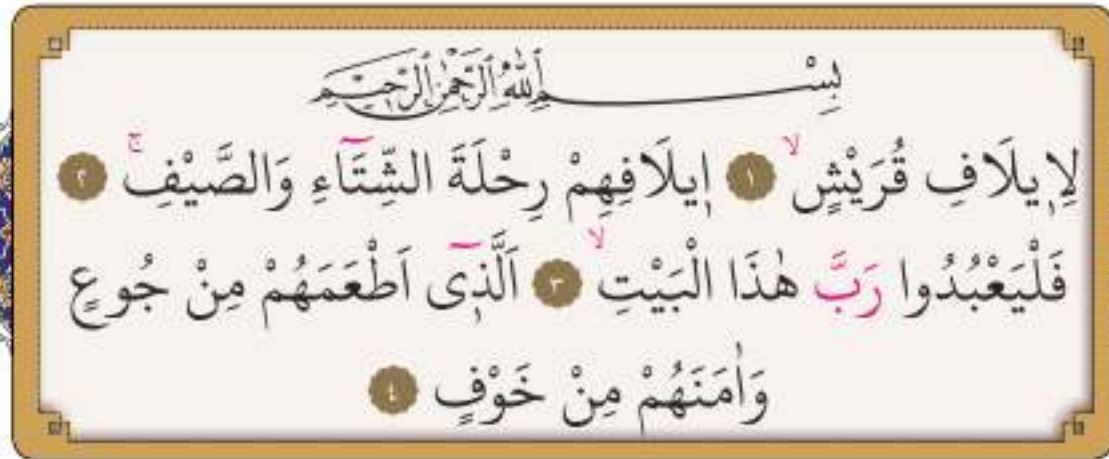 بِسْمِ اللّٰهِ الرَّحْمٰنِ الرَّحِيمِ
لِاٖيلَافِ قُرَيْشٍۙ ١ اٖيلَافِهِمْ رِحْلَةَ الشِّتَٓاءِ وَالصَّيْفِۚ ٢
فَلْيَعْبُدُوا رَبَّ هٰذَا الْبَيْتِۙ ٣ اَلَّذٖٓى اَطْعَمَهُمْ مِنْ جُوعٍ
وَاٰمَنَهُمْ مِنْ خَوْفٍ ٤